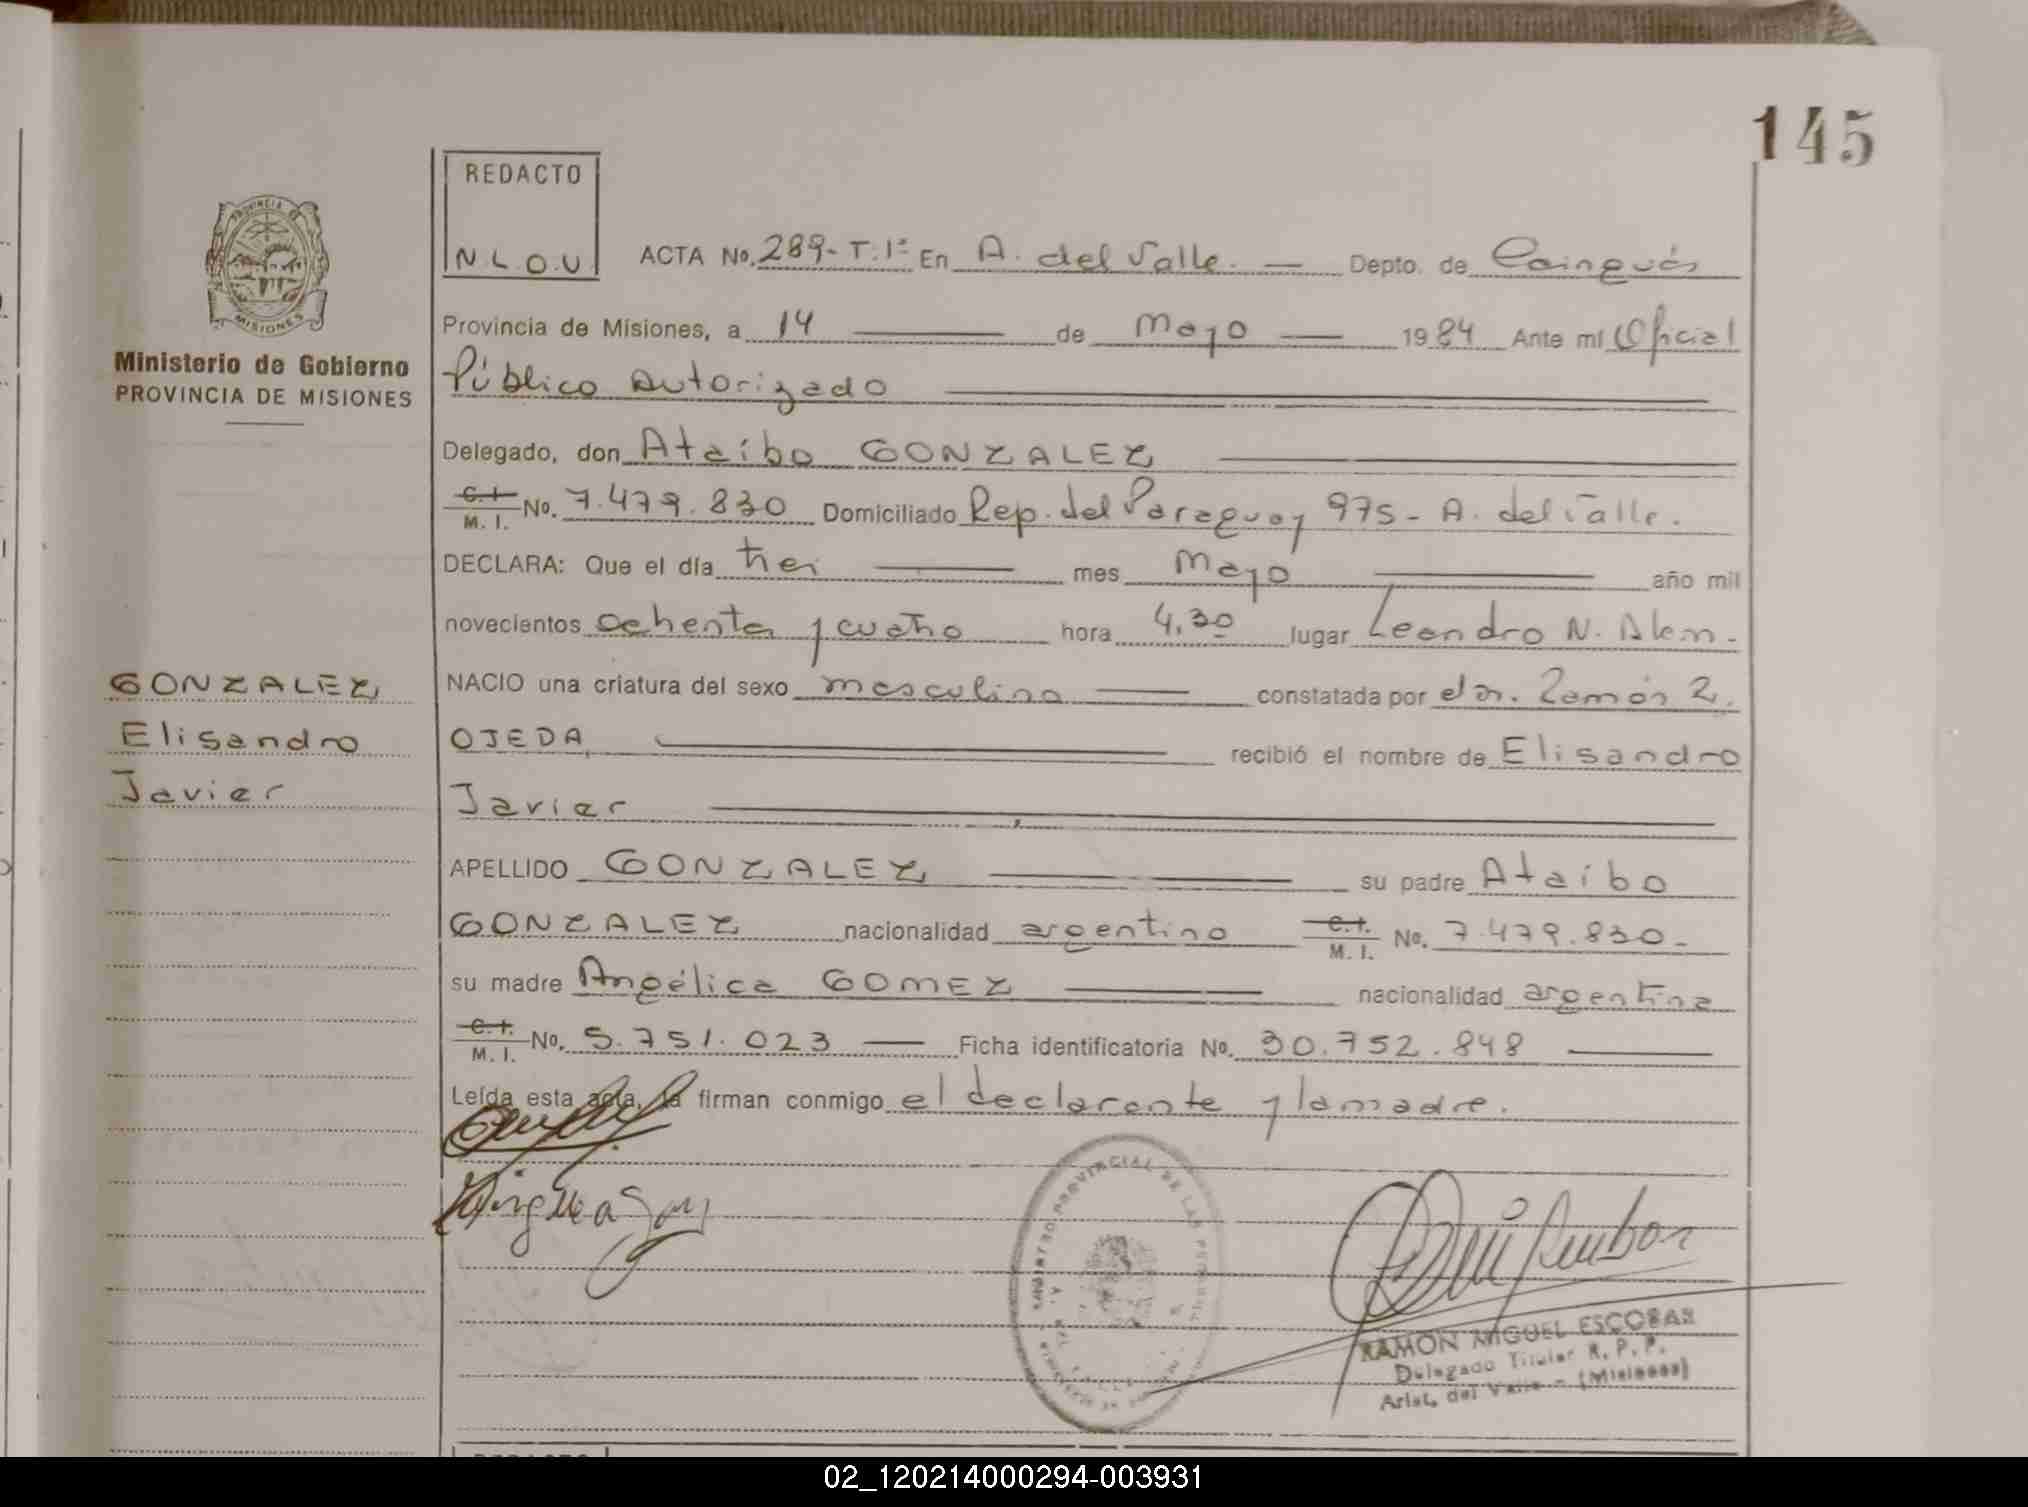 145
REDACTO
N.L.O.U.
PROVINCIA DE
MISIONES
Ministerio de Gobierno
PROVINCIA DE MISIONES
GONZALEZ
Elisandro
Javier
ACTA No. 289- T:1º En A. del Valle. — Depto. de Cainguás
Provincia de Misiones, a 14 — de Mayo — 1984 Ante mí Oficial
Público Autorizado
Delegado, don Ataíbo GONZALEZ
C.I. M. I. No. 7.479.830 Domiciliado Rep. del Paraguay 975 - A. del Valle.
DECLARA: Que el día tres — mes Mayo — año mil
novecientos ochenta y cuatro hora 4,30 lugar Leandro N. Alem.
NACIO una criatura del sexo masculino — constatada por el Dr. Ramón R.
OJEDA, — recibió el nombre de Elisandro
Javier
APELLIDO GONZALEZ — su padre Ataíbo
GONZALEZ nacionalidad argentino C.I. M. I. No. 7.479.830-
su madre Angélica GOMEZ — nacionalidad argentina
C.I. M. I. No. 5.751.023 — Ficha identificatoria No. 30.752.848 —
Leída esta acta, la firman conmigo el declarante y la madre.
RAMON MIGUEL ESCOBAR
Delegado Titular R. P. P.
Arist. del Valle - (Misiones)
02_120214000294-003931